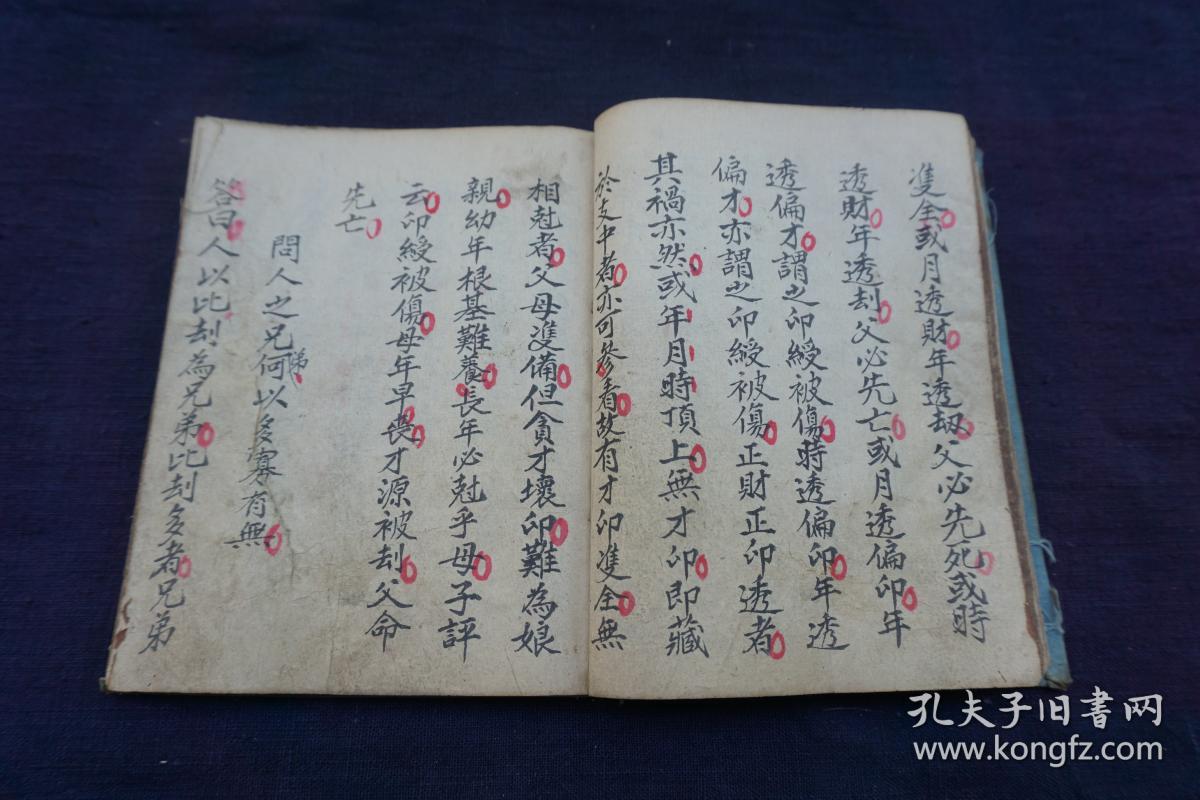 隻全或月透財年透刼父必先死或時
透財年透刦父必先亡或月透偏印年
透偏才謂之印綬被傷時透偏印年透
偏才亦謂之印綬被傷正財正印透者
其禍亦然或年月時頂上無才印即藏
於支中者亦可參看故有才印隻全無
相尅者父母準備但貪才壞印難為娘
親幼年根基難養長年必尅乎母子評
云印綬被傷母年早喪才源被刦父命
先亡
問人之兄弟何以多寡有無
答曰人以比刦為兄弟比刦多者兄弟
孔夫子旧书网
www.kongfz.com